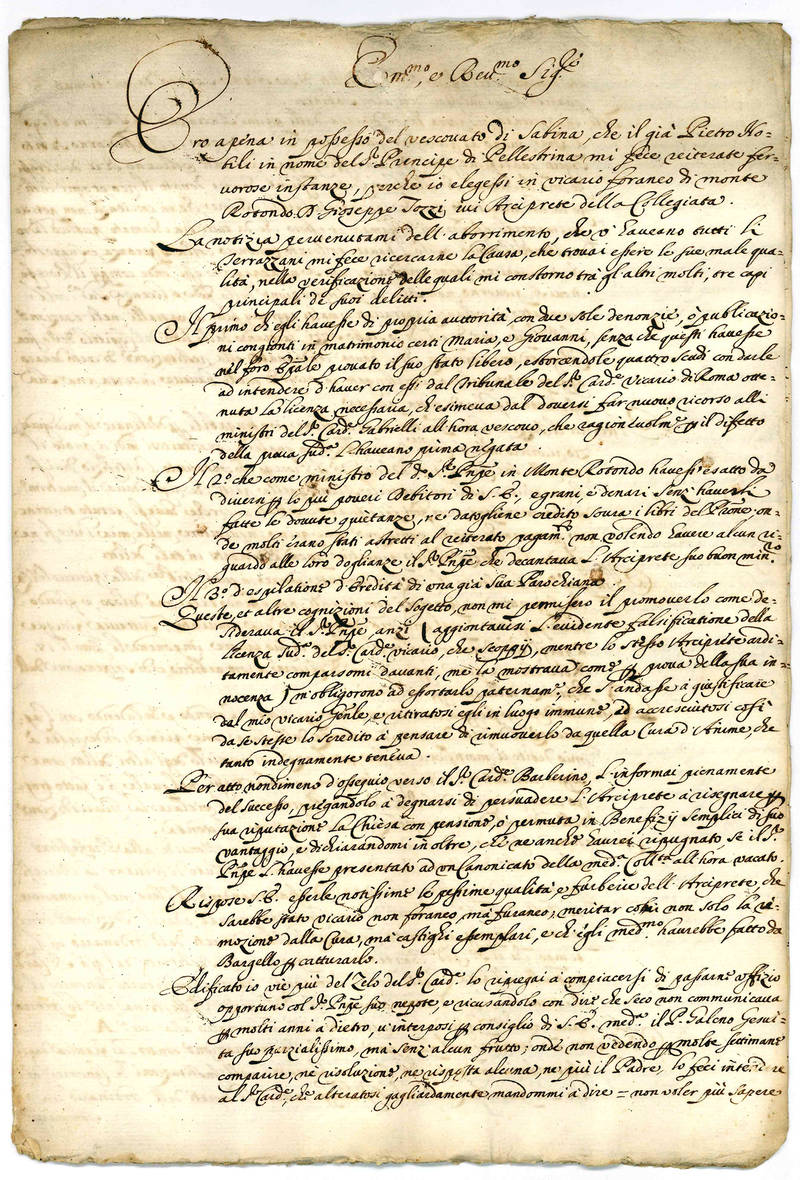 Em.mo, e Reu.mo Sig.re
Ero apena in possesso del vescovato di Sabina, che il già Pietro No-
bili in nome del S.r Prencipe di Pellestrina mi fece reiterate fer-
vorose instanze, perche io elegessi in vicario foraneo di monte
Rotondo D. Gioseppe Tozzi, ivi Arciprete della Collegiata.
La notizia pervenutami dell'aborrimento, che v'haveano tutti li
Terrazzani mi fece ricercarne la Causa, che trovai essere le sue male qua-
lità, nella verificazione delle quali mi constorno trà gl'altri molti, tre capi
principali de suoi delitti.
Il primo ch'egli havesse di propria auttorità, con due sole denonzie, ò publicazio-
ni congionti in matrimonio certi Maria, e Giovanni, senza che questi havesse
nel foro provato il suo stato libero, estorcendole quattro scudi con darle
ad intendere d'haver con essi dal Tribunale del S.r Card.e Vicario di Roma otte-
nuta la licenza necessaria, ch'esimeva dal doversi far nuovo ricorso alli
ministri del S.r Card.e Gabrielli all'hora vescovo, che ragionevolm.e il difetto
della prova sud.a l'haveano prima negata.
Il 2.o che come ministro del d.o S.r Pnpe in Monte Rotondo havess'esatto da
diversi lo più poveri Debitori di S.E., e grani, e denari senz'haverli
fatte le dovute quietanze, ne datogliene credito soura i libri del Prone, on-
de molti erano stati astretti al reiterato pagam.to non volendo havere alcun ri-
guardo alle loro doglianze il S.r Pnpe, che decantava l'Arciprete suo buon min.ro
Il 3.o d'espilatione d'Eredità di una già sua Parochiana.
Queste, et altre cognizioni del sogetto, non mi permisero il promoverlo come de-
siderava il S.r Pnpe, anzi (aggiontavisi l'evidente falsificatione della
licenza sud.a del S.r Card.e vicario, che scoppij, mentre lo stesso Arciprete ardi-
tamente comparsomi davanti, me la mostrava come prova della sua in-
nocenza) m'obligorono ad essortarlo paternam.e, che s'andasse à giustificare
dal mio vicario Gen.le, e ritiratosi egli in luogo immune, ed accresciutosi così
da se stesse lo scredito à pensare di rimuoverlo da quella Cura d'Anime, che
tanto indegnamente teneva.
Per atto nondimeno d'ossequio verso il S.r Card.e Barberino, l'informai pienamente
del successo, pregandolo à degnarsi di persuadere l'Arciprete à risegnare
sua riputazione la Chiesa con pensione, ò permuta in Benefizij semplici di suo
vantaggio, e dichiarandomi in oltre, che ne anche haurei ripugnato, se il S.r
Pnpe l'havesse presentato ad un Canonicato della med.a Coll.ta all'hora vacato.
Rispose S.E. esserle notissime le pessime qualità, e furberie dell'Arciprete, che
sarebbe stato vicario non foraneo, mà furaneo, meritar costui non solo la ri-
mozione dalla Cura, mà castighi essemplari, e ch'egli med.mo haurebbe fatto da
Bargello catturarlo.
Edificato io vie più del Zelo del S.r Card.e lo ripregai à compiacersi di passarne offizio
opportuno col S.r Pnpe suo nepote, e ricusandolo con dire che seco non communicava
molti anni à dietro, v'interposi consiglio di S.E. med.a il P. Galeno Gesui-
ta suo Parzialissimo, mà senz'alcun frutto; onde non vedendo molte settimane
comparire, ne risoluzione, ne risposta alcuna, ne più il Padre, lo feci intendere
al S.r Card.e, che alteratosi gagliardamente, mandommi à dire = non voler più sapere